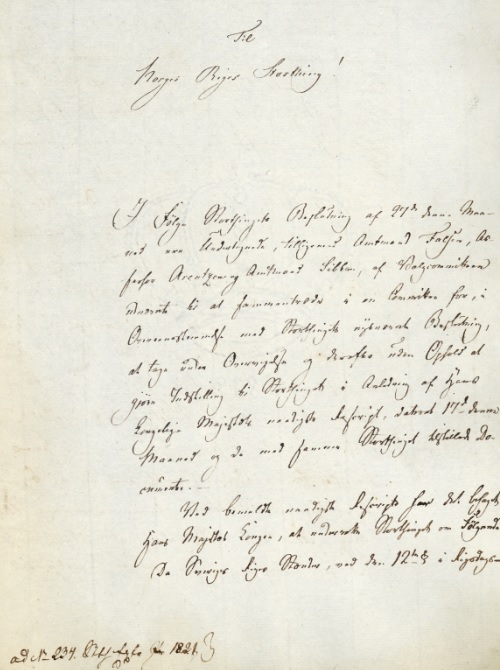 Til
Norges Riges Storthing!
I Følge Storthingets Beslutning af 27de denne Maa-
ned ere Undertegnede, tilligemed Amtmand Falsen, As-
sessor Arentzen og Amtmand Sibbern, af Valgcommitteen
udnævnte til at sammentræde i en Committee for, i
Overeensstemmelse med Storthingets nysnævnte Beslutning,
at tage under Overveielse og derefter uden Ophold at
gjøre Indstilling til Storthinget i Anledning af Hans
Kongelige Majestæts naadigste Rescript, dateret 17d denne
Maaned og de med samme Storthinget tilstillede Do-
cumenter.
Ved bemeldte naadigste Rescript har det behaget
Hans Majestæt Kongen, at underrette Storthinget om Følgende
Da Sveriges Riges Stænder, ved den 12te § i Rigsdags-
ad No 234. 1821